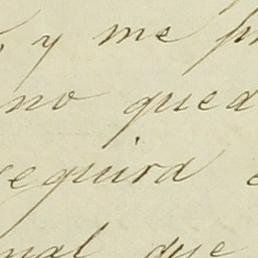 y me
no qued
seguira
nal que